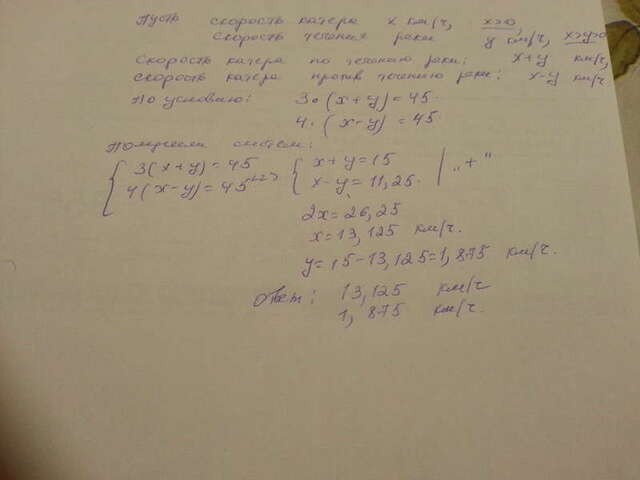 Пусть скорость катера x км/ч, x>0,
скорость течения реки y км/ч, x>y>0
Скорость катера по течению реки: x+y км/ч,
скорость катера против течению реки: x-y км/ч
По условию: 3·(x+y)=45
4·(x-y)=45
Получаем систем:
3(x+y)=45 x+y=15
4(x-y)=45 <=> x-y=11,25 | „+"
2x=26,25
x=13,125 км/ч.
y=15-13,125=1,875 км/ч.
Ответ: 13,125 км/ч
1,875 км/ч.